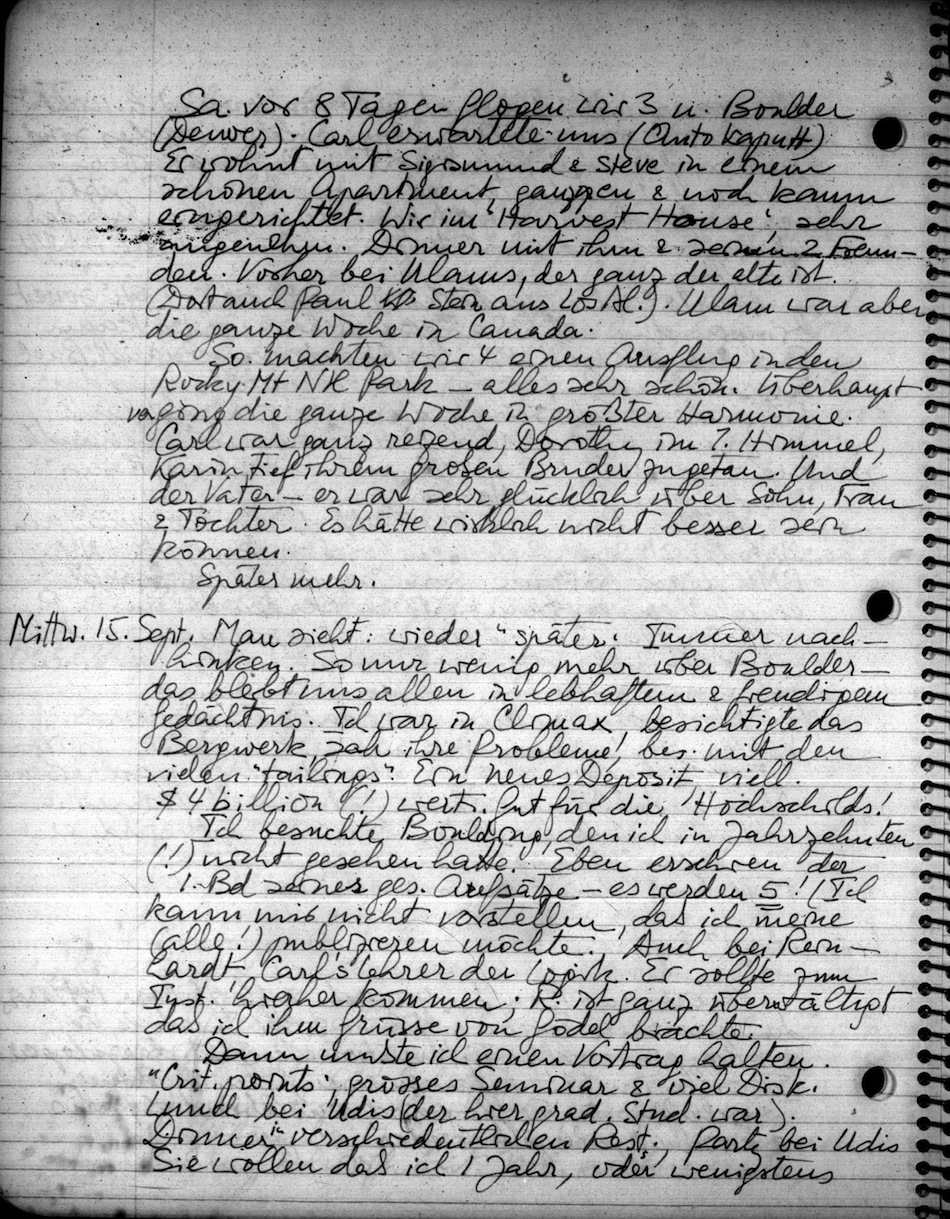 Sa. vor 8 Tagen flogen wir 3 n. Boulder
(Denver). Carl erwartete uns (Auto kaputt)
Er wohnt mit Sigismund & Steve in einem
schönen Apartment, ganz neu & noch kaum
eingerichtet. Wir im "Harvest House", sehr
angenehm. Dinner mit ihm & seinen 2 Freun-
den. Vorher bei Ulams, der ganz der alte ist.
(Dort auch Paul Stein aus Los Al.). Ulam war aber
die ganze Woche in Canada.
So. machten wir 4 einen Ausflug in den
Rocky Mt Ntl Park – alles sehr schön. Überhaupt
verging die ganze Woche in größter Harmonie.
Carl war ganz reizend, Dorothy im 7. Himmel,
Karin tief ihrem großen Bruder zugetan. Und
der Vater – er war sehr glücklich über Sohn, Frau
& Tochter. Es hätte wirklich nicht besser sein
können.
Später mehr.
Mittw. 15. Sept. Man sieht: wieder "später". Immer nach-
hinken. So nur wenig mehr über Boulder –
das bleibt uns allen in lebhaftem & freudigem
Gedächtnis. Ich war in Climax, besichtigte das
Bergwerk, sah ihre Probleme, bes. mit den
vielen "tailings". Ein neues Deposit viell.
$ 4 billion (!) wert. Gut für die Hochschilds!
Ich besuchte Boulding, den ich in Jahrzehnten
(!) nicht gesehen hatte. Eben erschien der
1. Bd seines ges. Aufsätze – es werden 5! (Ich
kann mir nicht vorstellen, das ich meine
(alle!) publizieren möchte. Auch bei Rein-
hardt, Carl's Lehrer der Logik. Er sollte zum
Inst. hieher kommen; R. ist ganz überwältigt
das ich ihm Grüsse von Gödel brachte.
Dann musste ich einen Vortrag halten.
"Crit. points". grosses Seminar & viel Disk.
Lunch bei Udis (der hier grad. Stud. war).
Dinner verschiedentlichen Rest., Party bei Udis
Sie wollen das ich 1 Jahr, oder wenigstens